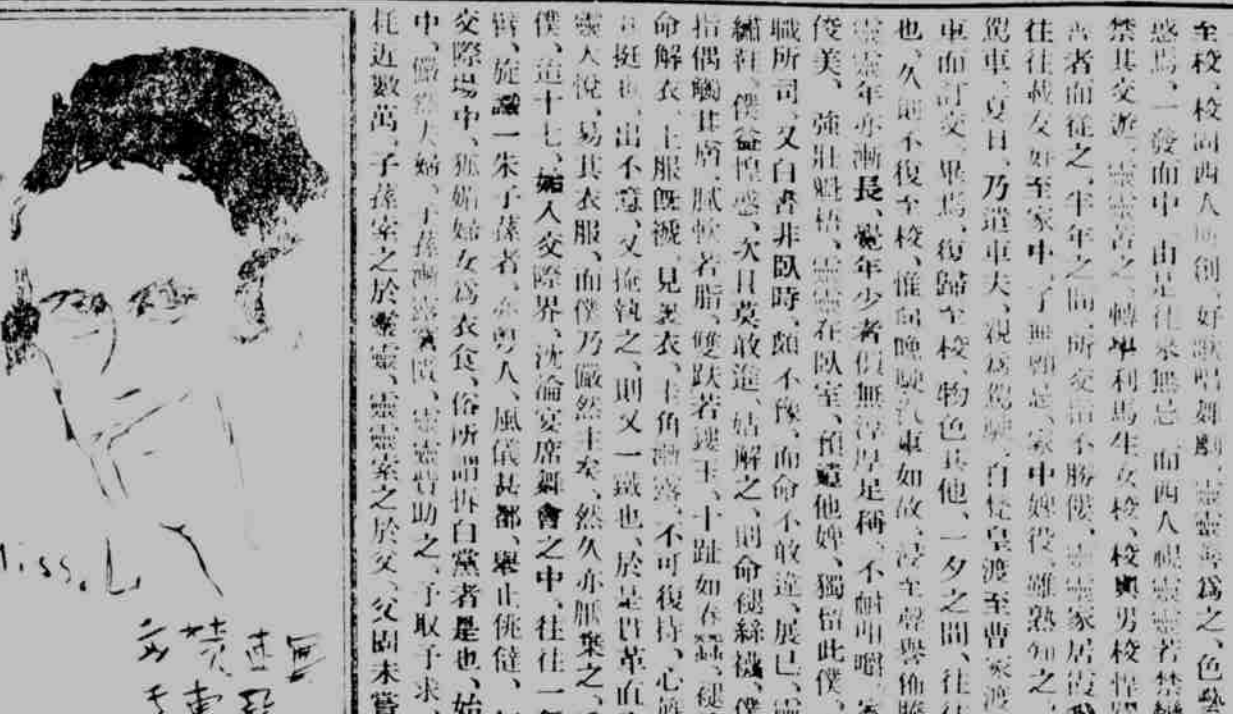 至校、校固西人所創、好歌唱舞劇、靈靈善為之、色藝
惑焉、一發而中、由是往來無忌、而西人視靈靈若禁臠
禁其交遊、靈靈苦之、轉學利馬生女校、校與男校
者而從之、半年之間、所交指不勝僂、靈靈家居
往往載友好至家中、了無顧忌、家中婢役、雖熟知之、
駕車、夏日、乃遣車夫、親為駕駛、自梵皇渡至曹家渡
車而訂交、畢焉、復歸至校、物色其他、一夕之間、往往
也、久則不復至校、惟向晚駛汽車如故、浸至聲譽
靈靈年亦漸長、覺年少者俱無淳厚足稱、不耐咀嚼、
俊美、強壯魁梧、靈靈在臥室、預遣他婢、獨留此僕、
職所司、又白晝非臥時、頗不豫、而命不敢違、展已、靈
繡鞋、僕益惶惑、次且莫敢進、姑解之、則命褪絲襪、僕
指偶觸其膚、膩軟若脂、雙趺若鏤玉、十趾如春蠶、褪
命解衣、上服既褫、見褻衣、圭角漸露、不可復持、心
挺也、出不意、又掩執之、則又一鐵也、於是貫革直
靈大悅、易其衣服、而僕乃儼然主矣、然久亦厭棄之、
僕、造十七、始入交際界、沈淪宴席舞會之中、往往一
旋識一朱子葆者、亦粵人、風儀甚都、舉止佻㒓、
交際場中、狐媚婦女為衣食、俗所謂拆白黨者是也、始
中、儼然夫婦、子葆漸露窘、靈靈嘗助之、予取予求、
耗近數萬、子葆索之於靈靈、靈靈索之於父、父固未嘗
Miss. L